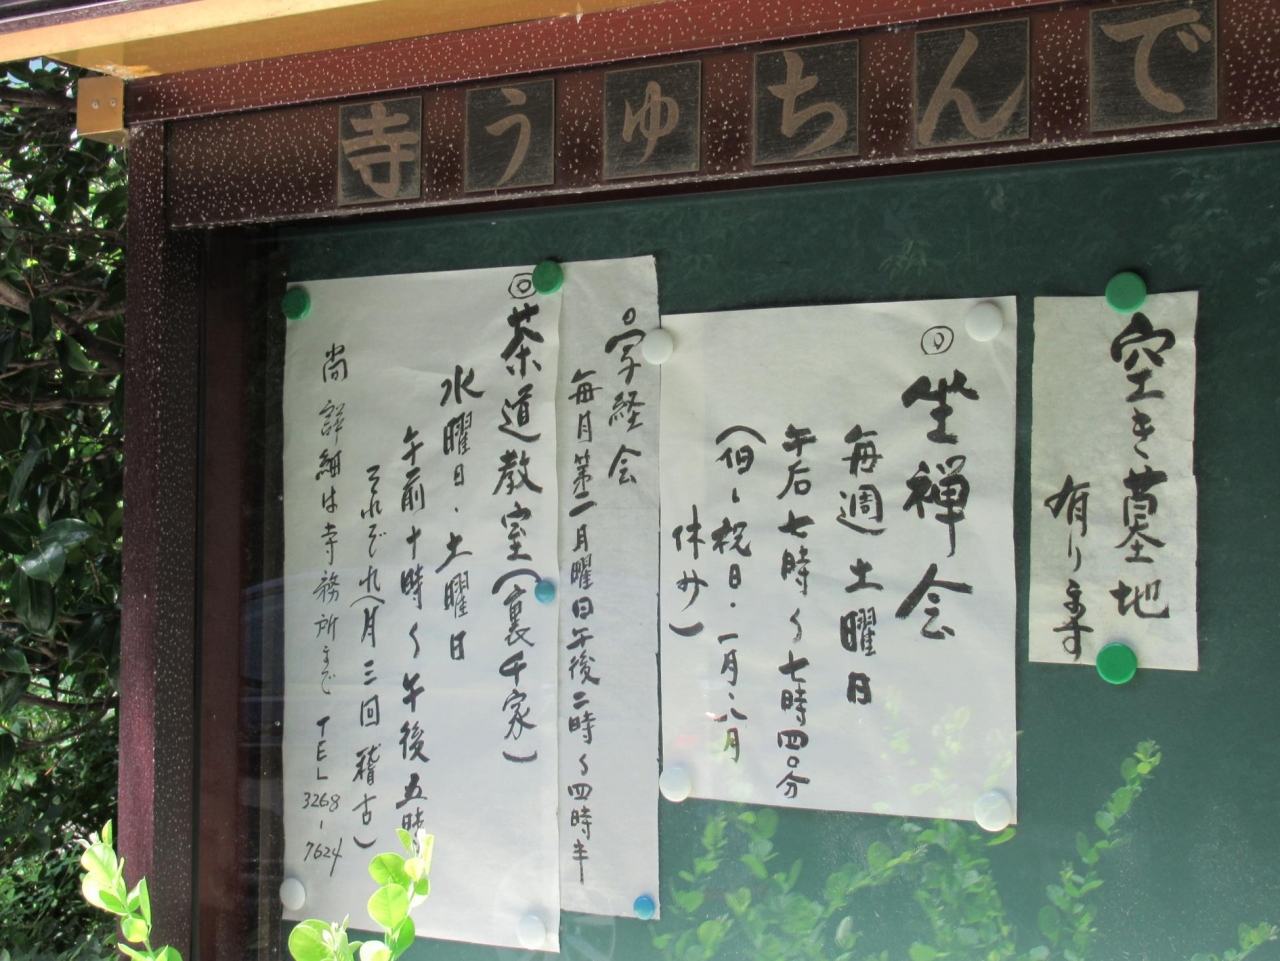 でんちゅう寺
空き墓地
有ります
坐禅会
毎週土曜日
午后七時〜七時四〇分
(但し祝日・一月・八月
休み)
写経会
毎月第一月曜日午後二時〜四時半
茶道教室(裏千家)
水曜日・土曜日
午前十時〜午後五時
それぞれ(月三回稽古)
尚詳細は寺務所まで TEL 3268-7624